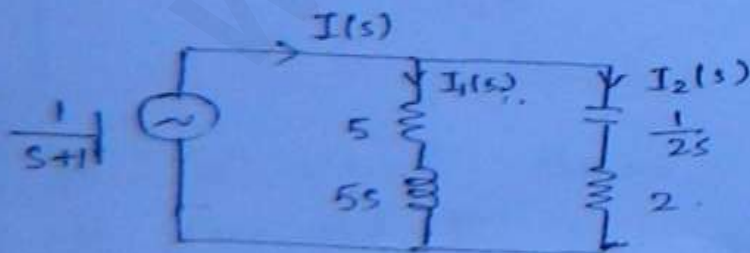 I(s)
I₁(s)
I₂(s)
1/(s+1)
5
1/2s
5s
2